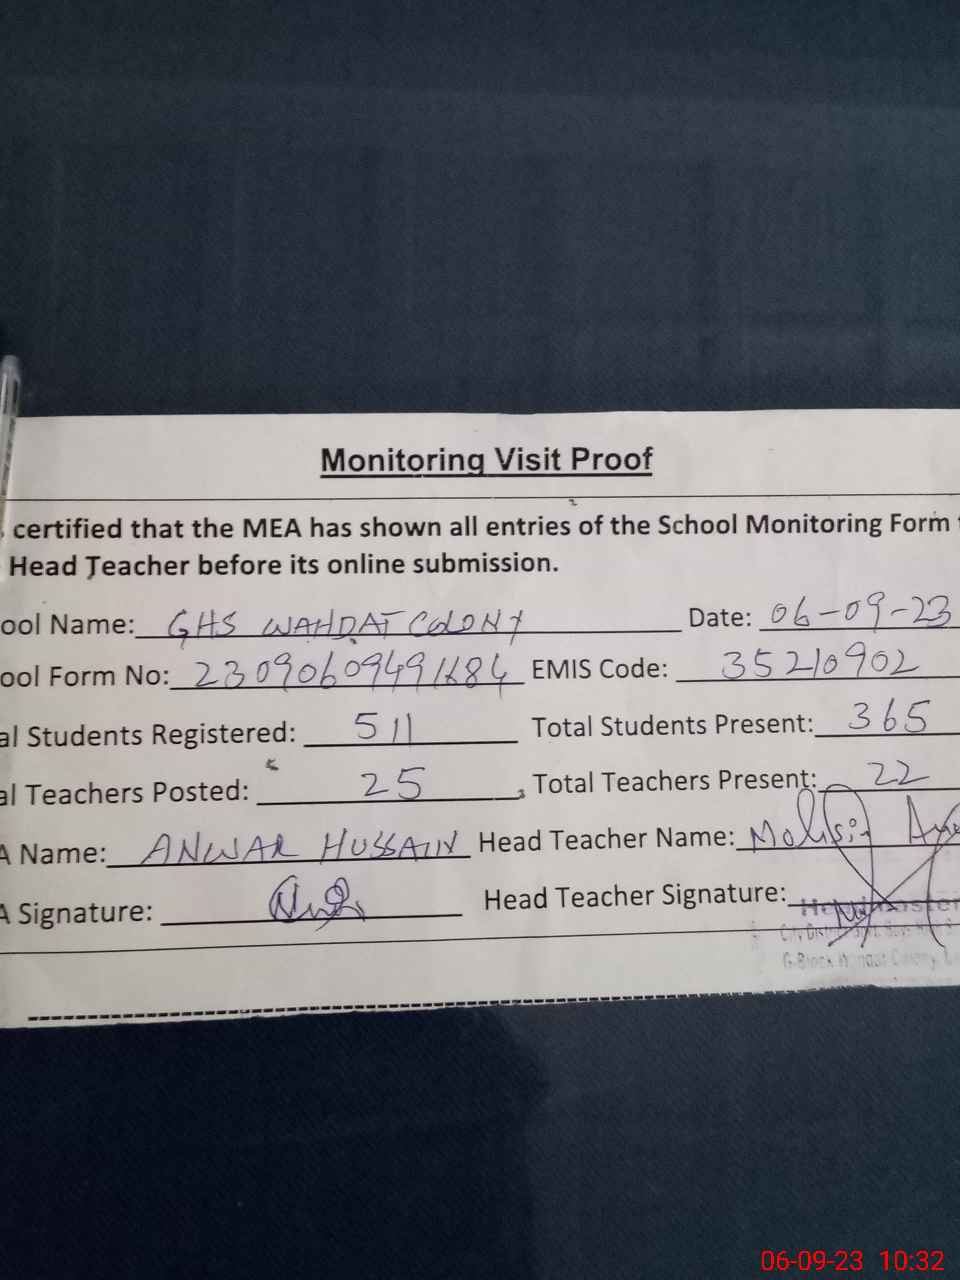 Monitoring Visit Proof
certified that the MEA has shown all entries of the School Monitoring Form
Head Teacher before its online submission.
ool Name: GHS WAHDAT COLONY Date: 06-09-23
ool Form No: EMIS Code: 35210902
al Students Registered: 511 Total Students Present: 365
al Teachers Posted: 25 Total Teachers Present: 22
A Name: ANWAR HUSSAIN Head Teacher Name: Mohsin
A Signature: Head Teacher Signature:
Headmaster
G-Block Wahdat Colony
06-09-23 10:32